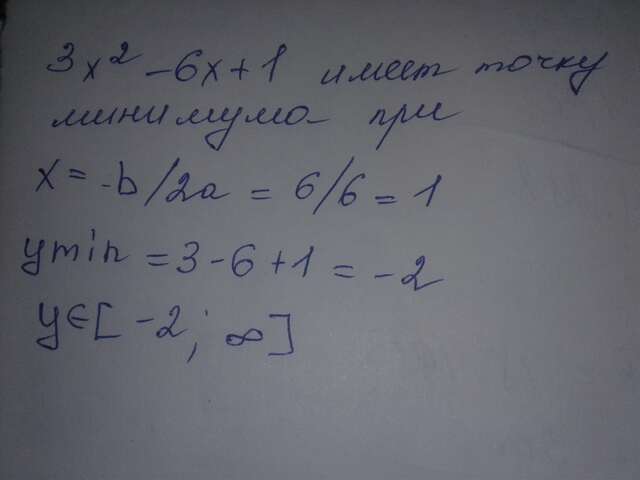 3x² - 6x + 1 имеет точку
минимума при
x = -b/2a = 6/6 = 1
ymin = 3 - 6 + 1 = -2
y∈[-2; ∞]